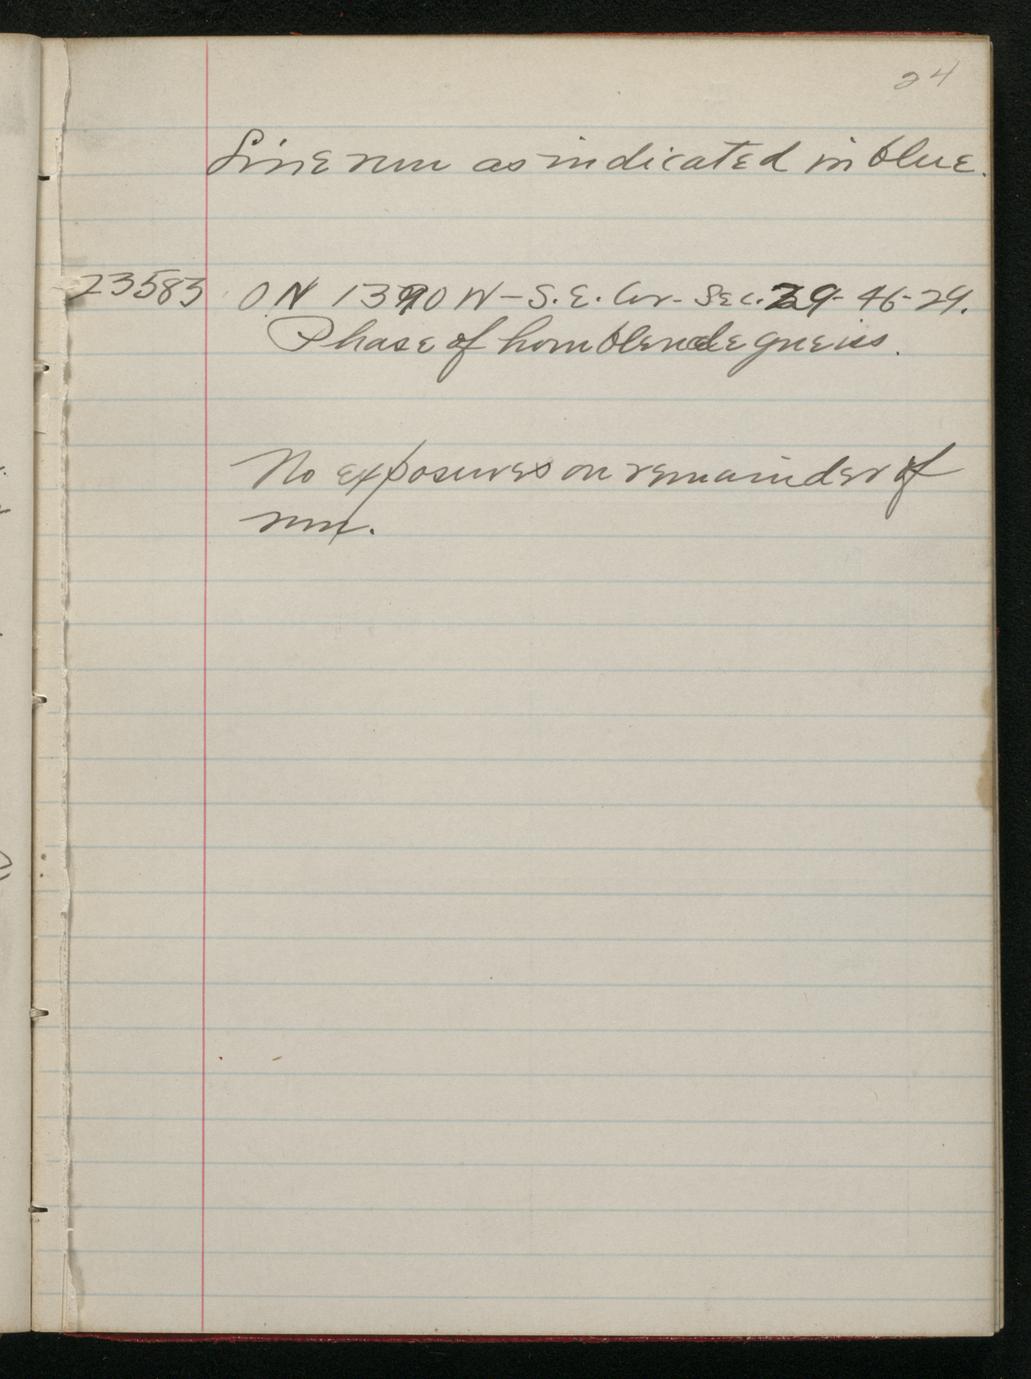 24
Line run as indicated in blue.
23583 0 N 1390 W - S.E. Cor. Sec. 29-46-29.
Phase of hornblende gneiss.
No exposures on remainder of
run.